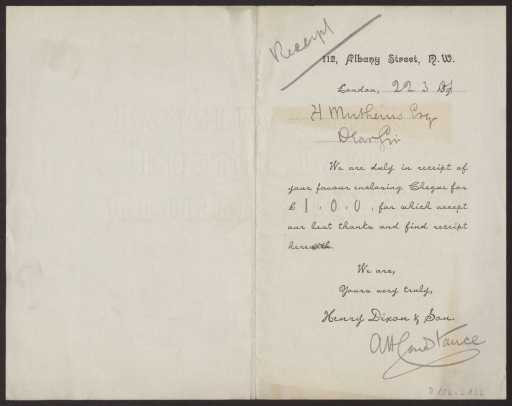 Receipt
112, Albany Street, N.W.
London, 22 3
H Muthesius Esq.
Dear Sir
We are duly in receipt of
your favour enclosing Cheque for
£ 1 . 0 . 0 . for which accept
our best thanks and find receipt
here
We are,
Yours very truly,
Henry Dixon & Son.
AH Constance